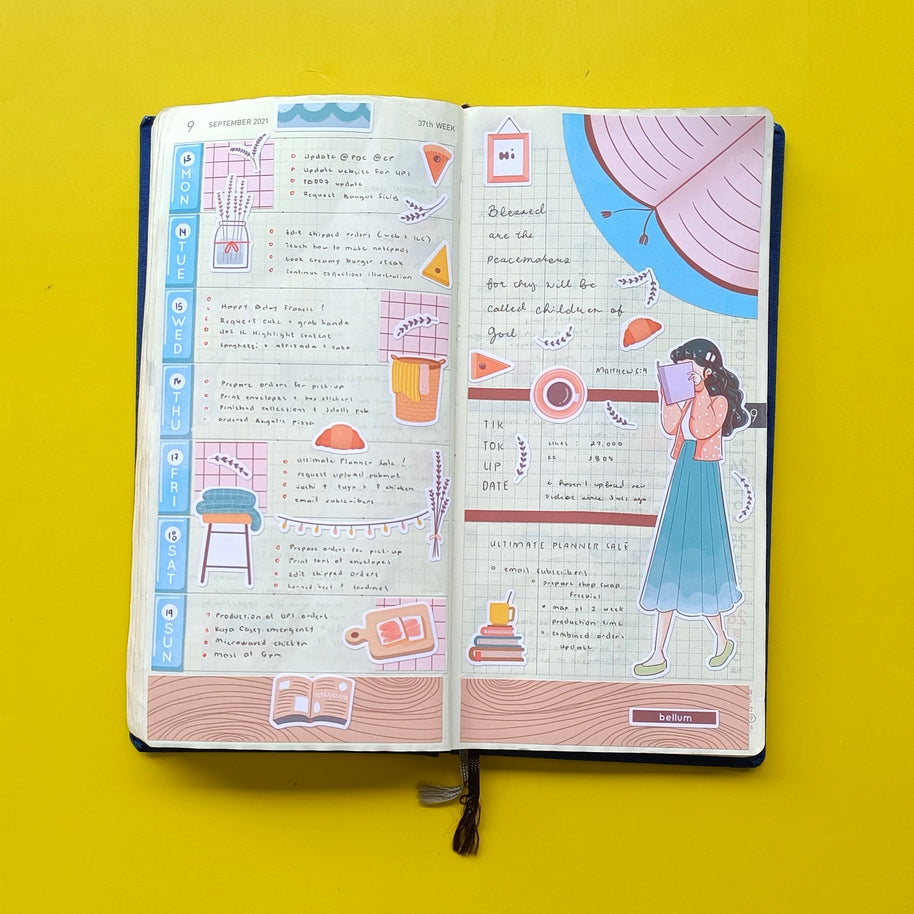 9 SEPTEMBER 2021
37th WEEK
13 MON
Update @ PDC @ CP
Update website for UPS
TBDO7 update
Request Bangus
14 TUE
Edit shipped orders (web +
Teach how to make notepads
Cook creamy burger steak
Continue collections illustration
15 WED
Happy Bday Francis !
Request cake + grab handa
UPS Highlight content
Spaghetti + afritada + cake
16 THU
Prepare orders for pick-up
Print envelopes + box stickers
Finished collections +
ordered Angel's pizza
17 FRI
Ultimate Planner Sale !
request upload
sushi + + chicken
email subscribers
18 SAT
Prepare orders for pick-up
Print tons of envelopes
Edit shipped orders
Corned beef + sardines
19 SUN
Production of UPS orders
Kuya Casey emergency
Microwaved chicken
mass at 6pm
Hi
Blessed
are the
peacemakers
for they will be
called children of
God.
Matthew 5:9
TIK
TOK
UP
DATE
Likes : 27,000
: 8804
i haven't upload new
videos since days ago
ULTIMATE PLANNER SALE
email subscribers
prepare shop swap
Freebies
max of 2 week
production time
combined orders
update
bellum